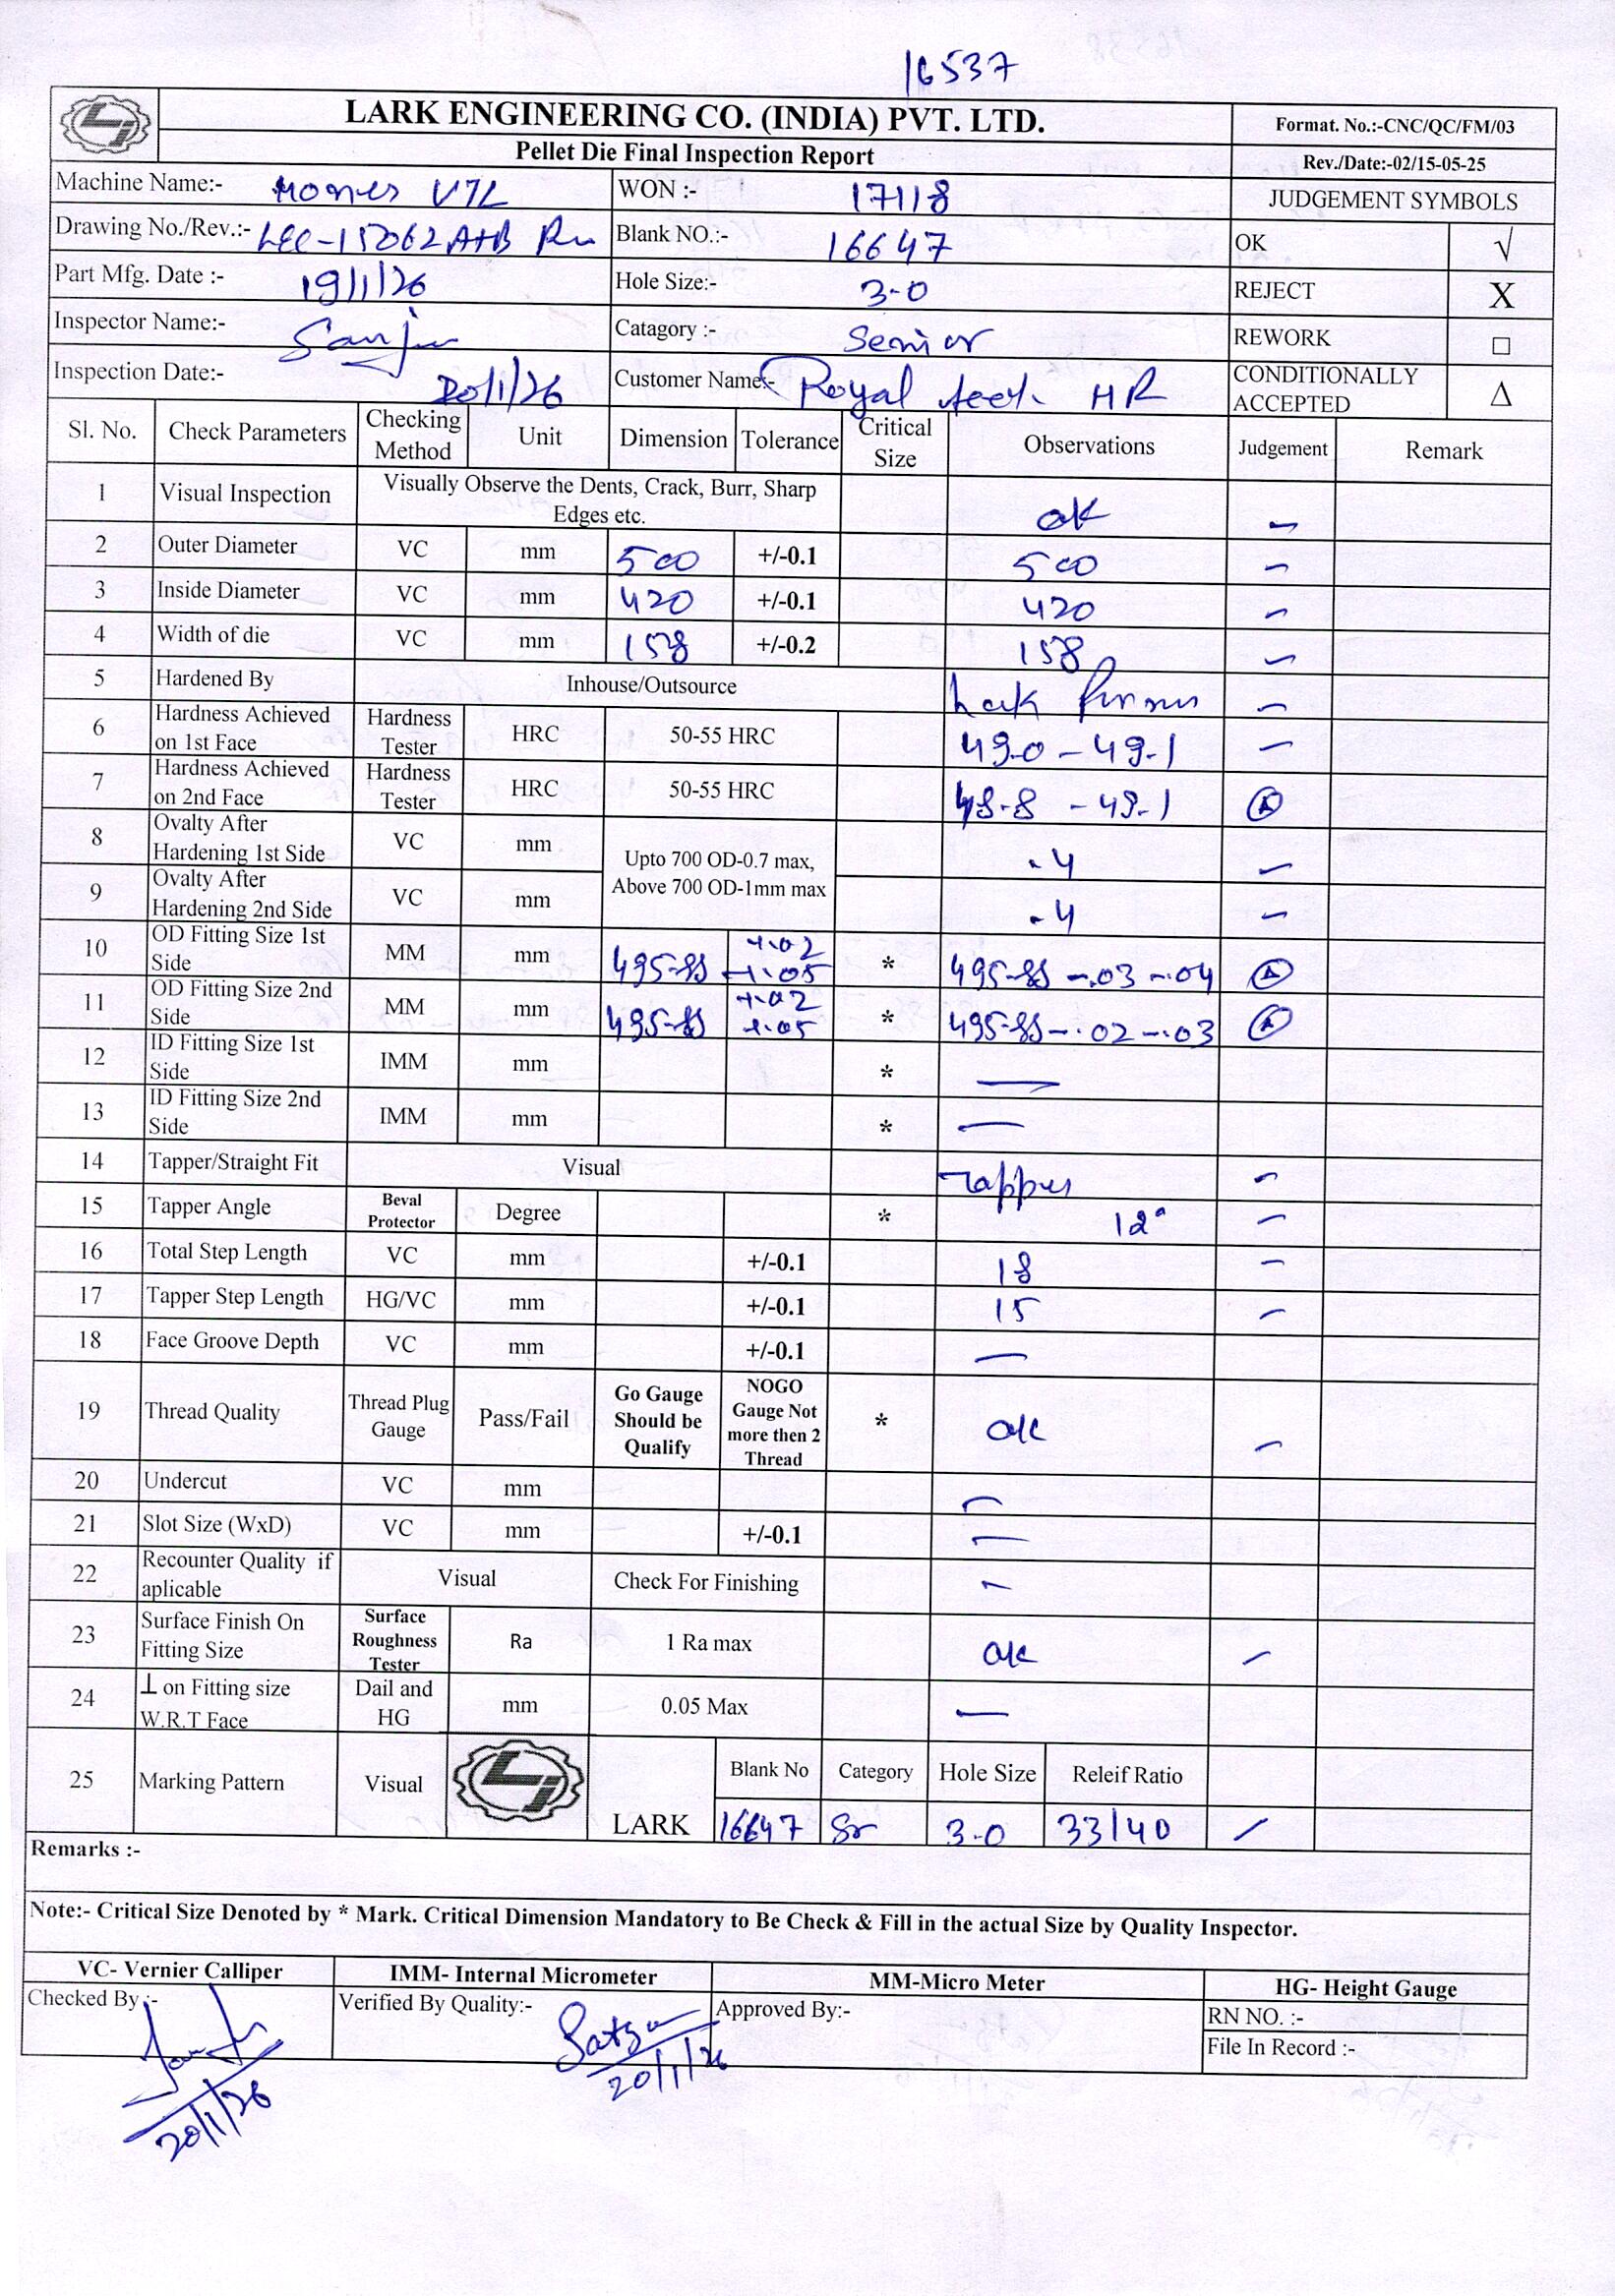 16537
LARK ENGINEERING CO. (INDIA) PVT. LTD.
Format. No.:-CNC/QC/FM/03
Pellet Die Final Inspection Report
Rev./Date:-02/15-05-25
Machine Name:- VTL WON :- 17118 JUDGEMENT SYMBOLS
Drawing No./Rev.:- LEC-15062 A+B Blank NO.:- 16647 OK √
Part Mfg. Date :- 19/1/26 Hole Size:- 3.0 REJECT X
Inspector Name:- Sanju Catagory :- Senior REWORK □
Inspection Date:- 20/1/26 Customer Name:- Royal HR CONDITIONALLY ACCEPTED Δ
Sl. No. Check Parameters Checking Method Unit Dimension Tolerance Critical Size Observations Judgement Remark
1 Visual Inspection Visually Observe the Dents, Crack, Burr, Sharp Edges etc. ok
2 Outer Diameter VC mm 500 +/-0.1 500
3 Inside Diameter VC mm 420 +/-0.1 420
4 Width of die VC mm 158 +/-0.2 158
5 Hardened By Inhouse/Outsource Lark
6 Hardness Achieved on 1st Face Hardness Tester HRC 50-55 HRC 49.0 - 49.1
7 Hardness Achieved on 2nd Face Hardness Tester HRC 50-55 HRC 48.8 - 49.1
8 Ovalty After Hardening 1st Side VC mm Upto 700 OD-0.7 max, Above 700 OD-1mm max .4
9 Ovalty After Hardening 2nd Side VC mm .4
10 OD Fitting Size 1st Side MM mm 495.85 +.02 +.05 * 495.85 -.03 -.04
11 OD Fitting Size 2nd Side MM mm 495.85 +.02 +.05 * 495.85 -.02 -.03
12 ID Fitting Size 1st Side IMM mm * —
13 ID Fitting Size 2nd Side IMM mm * —
14 Tapper/Straight Fit Visual Tapper
15 Tapper Angle Beval Protector Degree * 12°
16 Total Step Length VC mm +/-0.1 18
17 Tapper Step Length HG/VC mm +/-0.1 15
18 Face Groove Depth VC mm +/-0.1 —
19 Thread Quality Thread Plug Gauge Pass/Fail Go Gauge Should be Qualify NOGO Gauge Not more then 2 Thread * ok
20 Undercut VC mm —
21 Slot Size (WxD) VC mm +/-0.1 —
22 Recounter Quality if aplicable Visual Check For Finishing —
23 Surface Finish On Fitting Size Surface Roughness Tester Ra 1 Ra max ok
24 ⊥ on Fitting size W.R.T Face Dail and HG mm 0.05 Max —
25 Marking Pattern Visual LARK Blank No Category Hole Size Releif Ratio
16647 Sr 3.0 33/40
Remarks :-
Note:- Critical Size Denoted by * Mark. Critical Dimension Mandatory to Be Check & Fill in the actual Size by Quality Inspector.
VC- Vernier Calliper IMM- Internal Micrometer MM-Micro Meter HG- Height Gauge
Checked By :- Verified By Quality:- Approved By:- RN NO. :-
File In Record :-
20/1/26 20/1/26